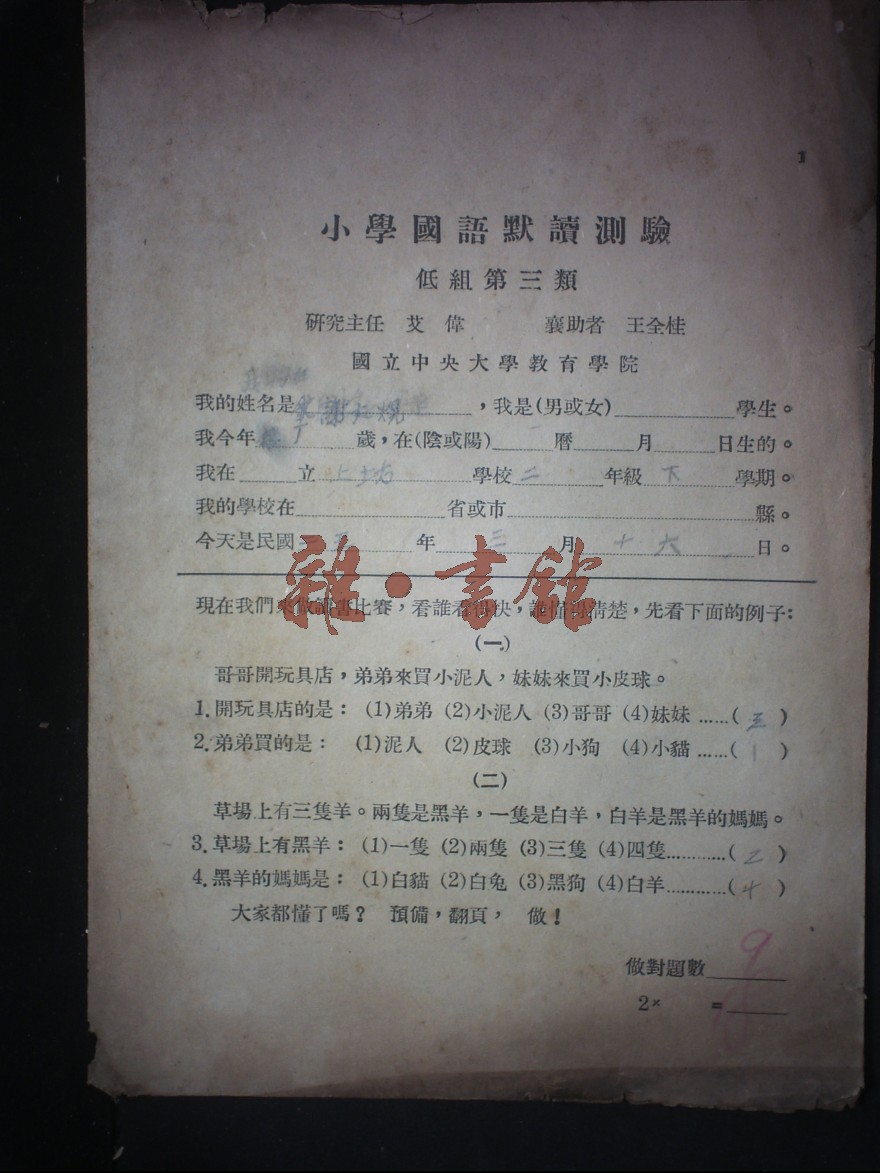 1
小學國語默讀測驗
低組第三類
研究主任 艾偉 襄助者 王全桂
國立中央大學教育學院
我的姓名是 謝 ，我是(男或女) 學生。
我今年 歲，在(陰或陽) 曆 月 日生的。
我在 立 學校 二 年級 下 學期。
我的學校在 省或市 縣。
今天是民國 五 年 三 月 十六 日。
雜·書館
現在我們來做讀書比賽，看誰看得快，誰懂得清楚，先看下面的例子：
(一)
哥哥開玩具店，弟弟來買小泥人，妹妹來買小皮球。
1.開玩具店的是：(1)弟弟 (2)小泥人 (3)哥哥 (4)妹妹……( 三 )
2.弟弟買的是： (1)泥人 (2)皮球 (3)小狗 (4)小貓……( 1 )
(二)
草場上有三隻羊。兩隻是黑羊，一隻是白羊，白羊是黑羊的媽媽。
3.草場上有黑羊：(1)一隻 (2)兩隻 (3)三隻 (4)四隻…………( 二 )
4.黑羊的媽媽是：(1)白貓 (2)白兔 (3)黑狗 (4)白羊…………( 十 )
大家都懂了嗎？ 預備，翻頁， 做！
做對題數 9
2× =